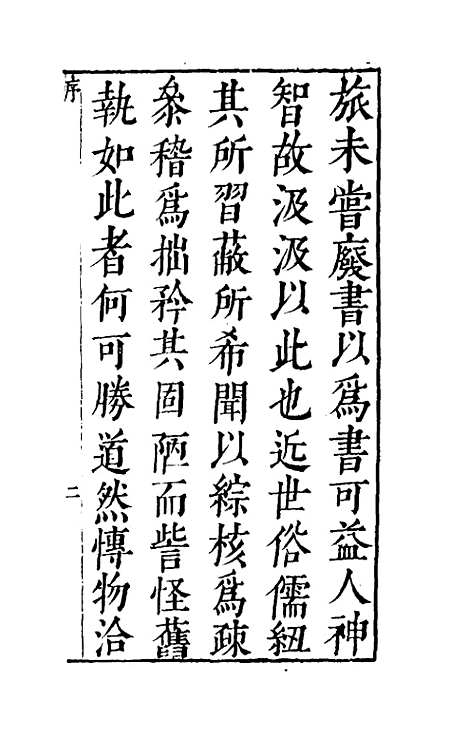 旅未嘗廢書以爲書可益人神
智故汲汲以此也近世俗儒紐
其所習蔽所希聞以綜核爲疎
叅稽爲拙矜其固陋而訾怪舊
執如此者何可勝道然愽物洽
序 二